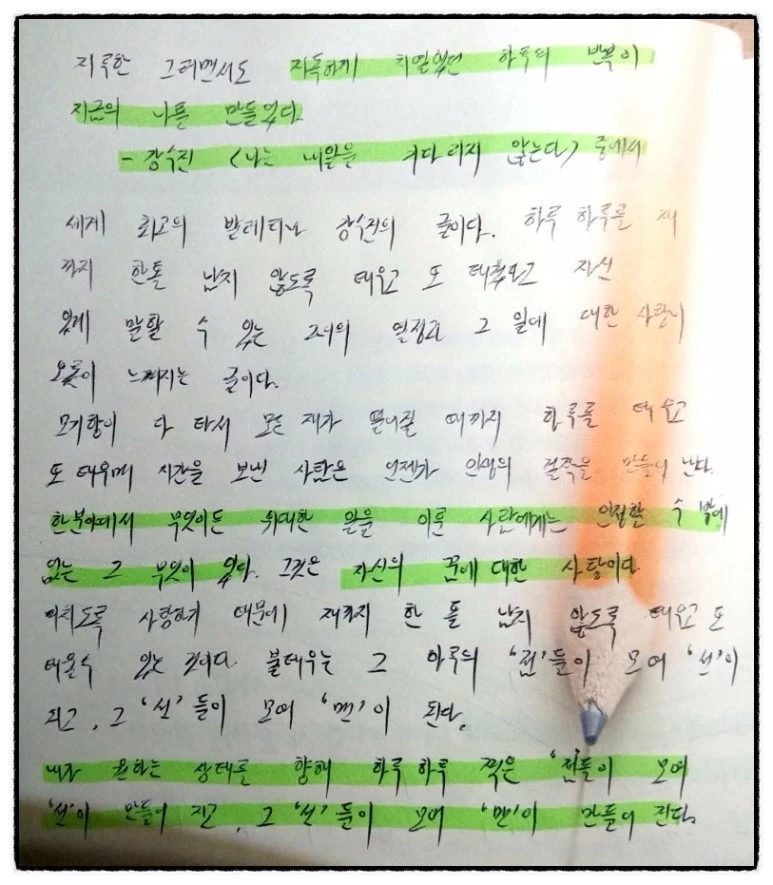 지루한 그러면서도 지독하게 치열했던 하루의 반복이
지금의 나를 만들었다.
- 강수진 <나는 내일을 기다리지 않는다> 중에서
세계 최고의 발레리나 강수진의 글이다. 하루 하루를 재
까지 한톨 남지 않도록 태우고 또 태웠다고 자신
있게 말할 수 있는 그녀의 열정과 그 일에 대한 사랑이
오롯이 느껴지는 글이다.
모기향이 다 타서 모든 재가 떨어질 때까지 하루를 태우고
또 태우며 시간을 보낸 사람은 언젠가 인생의 걸작을 만들어 낸다.
한분야에서 무엇이든 위대한 일을 이룬 사람에게는 인정할 수 밖에
없는 그 무엇이 있다. 그것은 자신의 꿈에 대한 사랑이다.
미치도록 사랑하기 때문에 재까지 한 톨 남지 않도록 태우고 또
태울수 있는 것이다. 불태우는 그 하루의 '점'들이 모여 '선'이
되고, 그 '선'들이 모여 '면'이 된다.
내가 원하는 상태를 향해 하루 하루 찍은 '점'들이 모여
'선'이 만들어 지고, 그 '선'들이 모여 '면'이 만들어 진다.